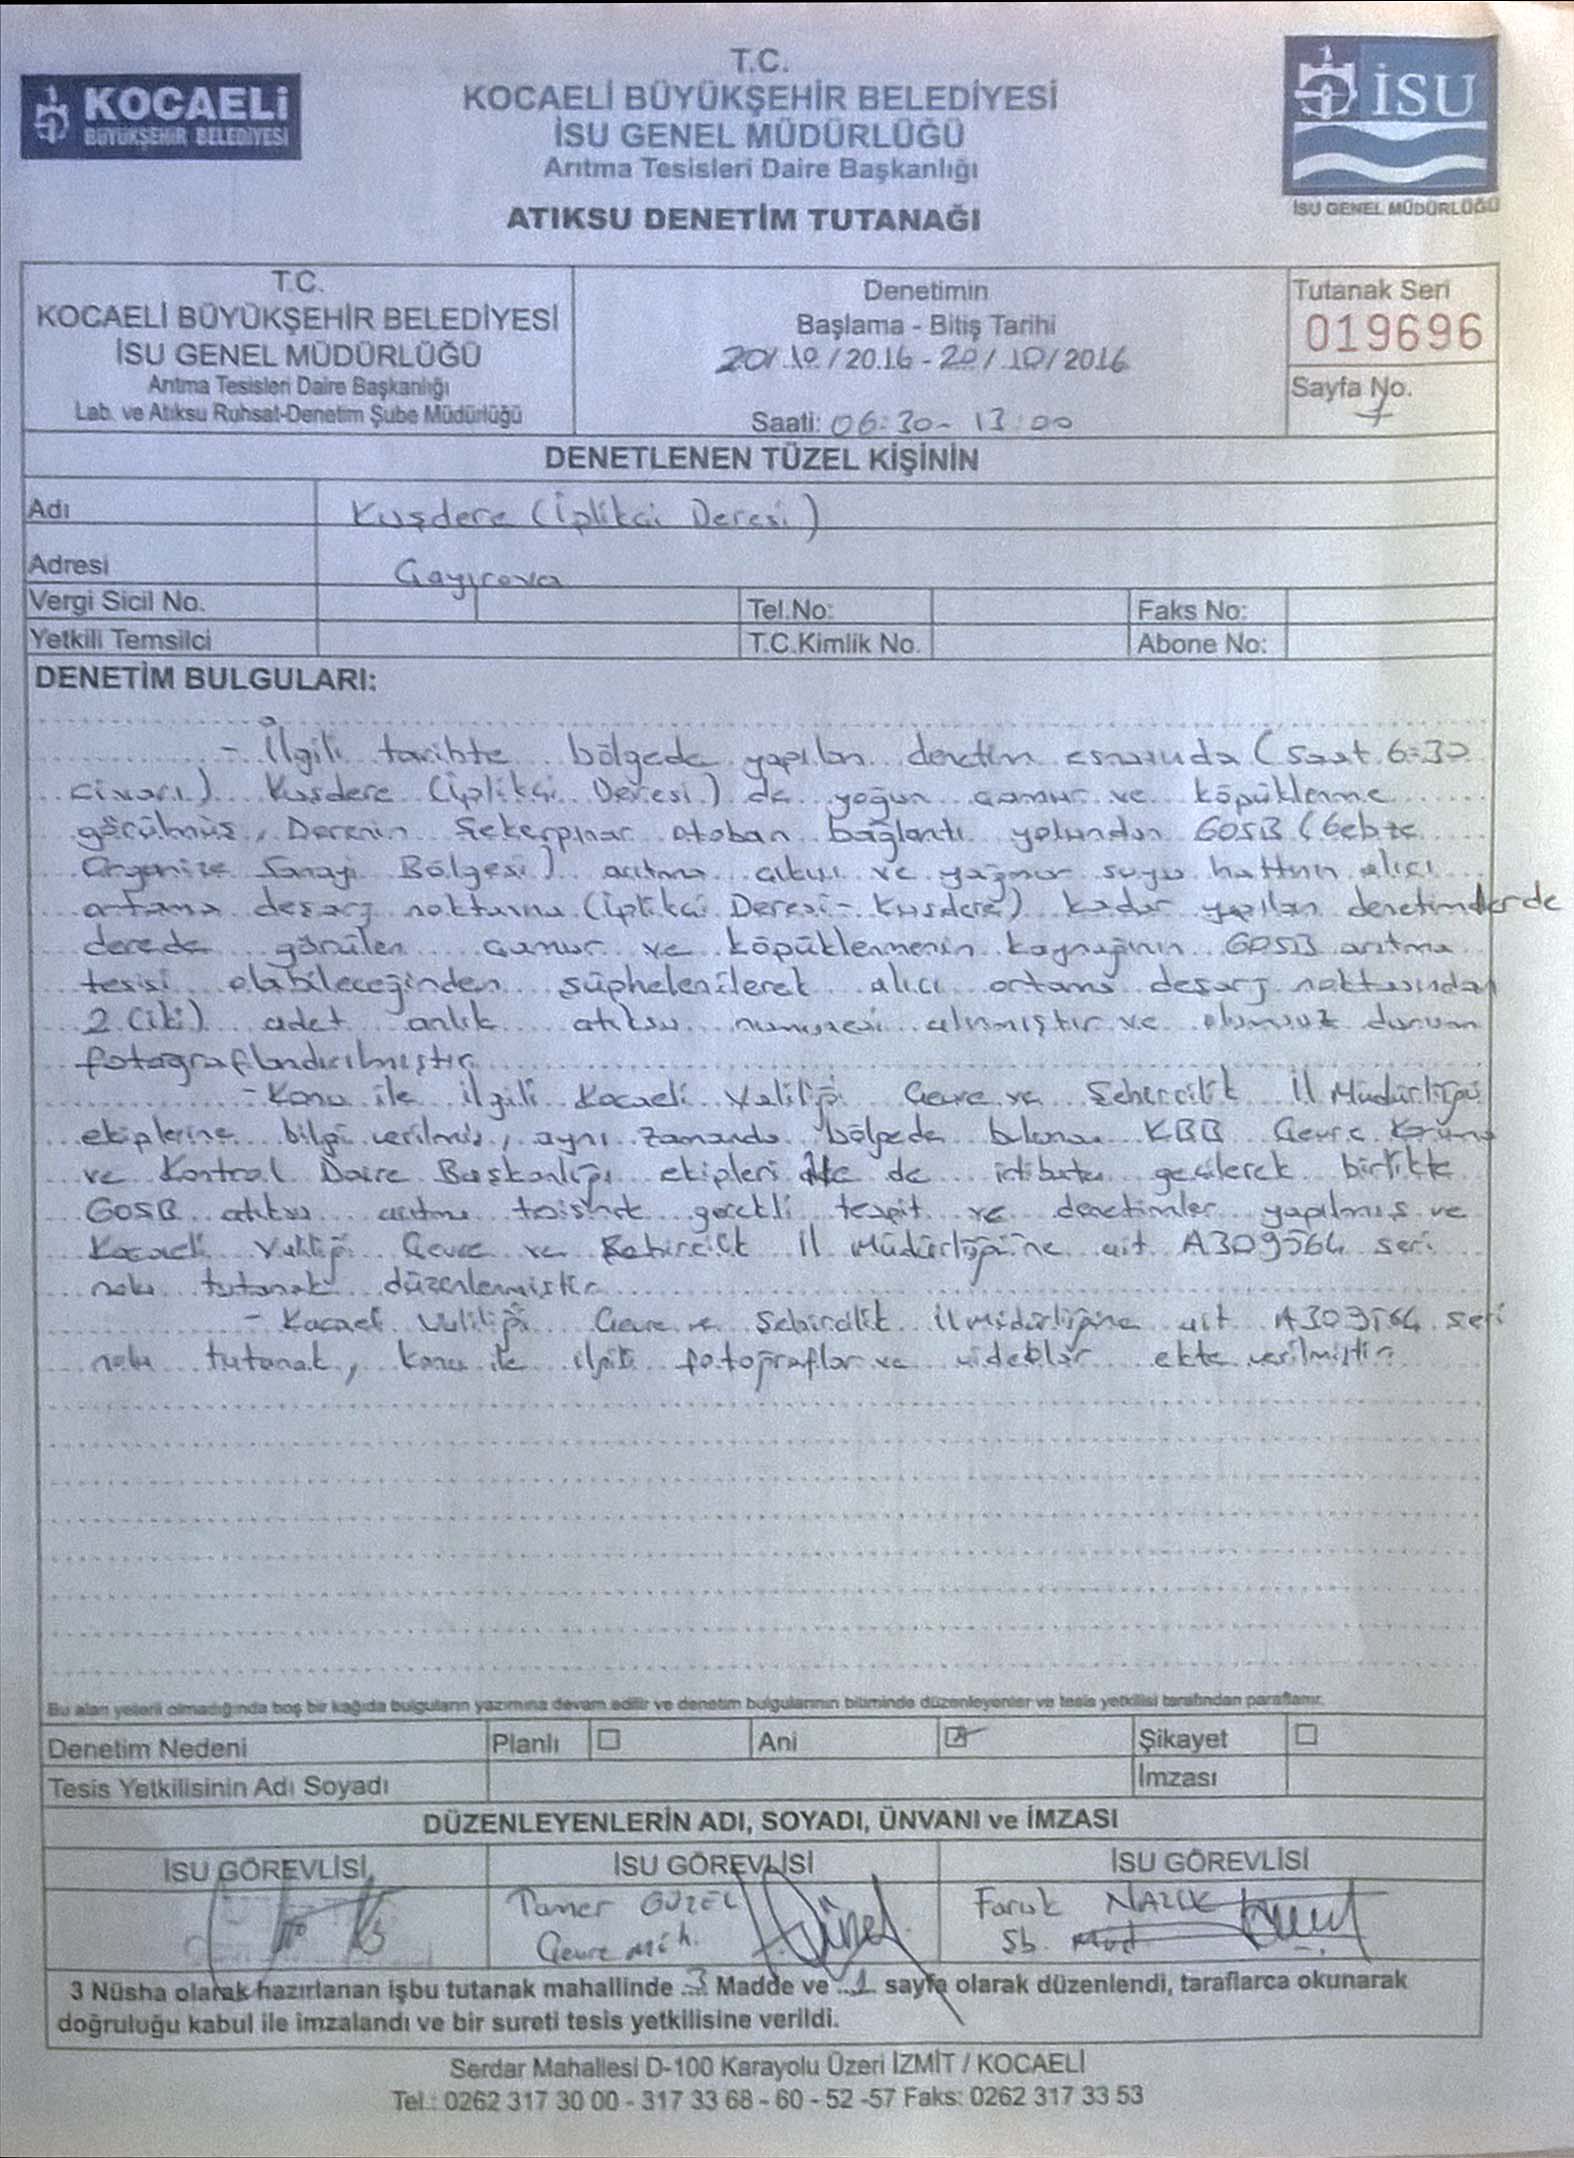 T.C.
KOCAELİ BÜYÜKŞEHİR BELEDİYESİ
İSU GENEL MÜDÜRLÜĞÜ
Arıtma Tesisleri Daire Başkanlığı
ATIKSU DENETİM TUTANAĞI
KOCAELİ
BÜYÜKŞEHİR BELEDİYESİ
İSU
İSU GENEL MÜDÜRLÜĞÜ
T.C.
KOCAELİ BÜYÜKŞEHİR BELEDİYESİ
İSU GENEL MÜDÜRLÜĞÜ
Arıtma Tesisleri Daire Başkanlığı
Lab. ve Atıksu Ruhsat-Denetim Şube Müdürlüğü
Denetimin
Başlama - Bitiş Tarihi
20/10/2016 - 20/10/2016
Saati: 06:30 - 13:00
Tutanak Seri
019696
Sayfa No.
1
DENETLENEN TÜZEL KİŞİNİN
Adı Kuşdere (İplikçi Deresi)
Adresi Çayırova
Vergi Sicil No. Tel.No: Faks No:
Yetkili Temsilci T.C.Kimlik No. Abone No:
DENETİM BULGULARI:
- İlgili tarihte bölgede yapılan denetim esnasında (Saat 6:30
civarı) Kuşdere (İplikçi Deresi) de yoğun çamur ve köpüklenme
görülmüş, Derenin Şekerpınar otoban bağlantı yolundan GOSB (Gebze
Organize Sanayi Bölgesi) arıtma çıkışı ve yağmur suyu hattının alıcı
ortama deşarj noktasına (İplikçi Deresi - Kuşdere) kadar yapılan denetimlerde
derede görülen çamur ve köpüklenmenin kaynağının GOSB arıtma
tesisi olabileceğinden şüphelenilerek alıcı ortama deşarj noktasından
2 (iki) adet anlık atıksu numunesi alınmıştır ve olumsuz durum
fotograflandırılmıştır.
- Konu ile ilgili Kocaeli Valiliği Çevre ve Şehircilik İl Müdürlüğü
ekiplerine bilgi verilmiş, aynı zamanda bölgede bulunan KBB Çevre Koruma
ve Kontrol Daire Başkanlığı ekipleri ile de irtibata geçilerek birlikte
GOSB atıksu arıtma tesisinde gerekli tespit ve denetimler yapılmış ve
Kocaeli Valiliği Çevre ve Şehircilik İl Müdürlüğüne ait A309564 seri
nolu tutanak düzenlenmiştir.
- Kocaeli Valiliği Çevre ve Şehircilik İl Müdürlüğüne ait A309564 seri
nolu tutanak, konu ile ilgili fotoğraflar ve videolar ekte verilmiştir.
Bu alan yeterli olmadığında boş bir kağıda bulguların yazımına devam edilir ve denetim bulgularının bitiminde düzenleyenler ve tesis yetkilisi tarafından paraflanır.
Denetim Nedeni Planlı Ani Şikayet
Tesis Yetkilisinin Adı Soyadı İmzası
DÜZENLEYENLERİN ADI, SOYADI, ÜNVANI ve İMZASI
İSU GÖREVLİSİ İSU GÖREVLİSİ İSU GÖREVLİSİ
Tamer GÜZEL Faruk
Çevre Müh. Şb. Müd
3 Nüsha olarak hazırlanan işbu tutanak mahallinde 3 Madde ve 1 sayfa olarak düzenlendi, taraflarca okunarak
doğruluğu kabul ile imzalandı ve bir sureti tesis yetkilisine verildi.
Serdar Mahallesi D-100 Karayolu Üzeri İZMİT / KOCAELİ
Tel.: 0262 317 30 00 - 317 33 68 - 60 - 52 -57 Faks: 0262 317 33 53